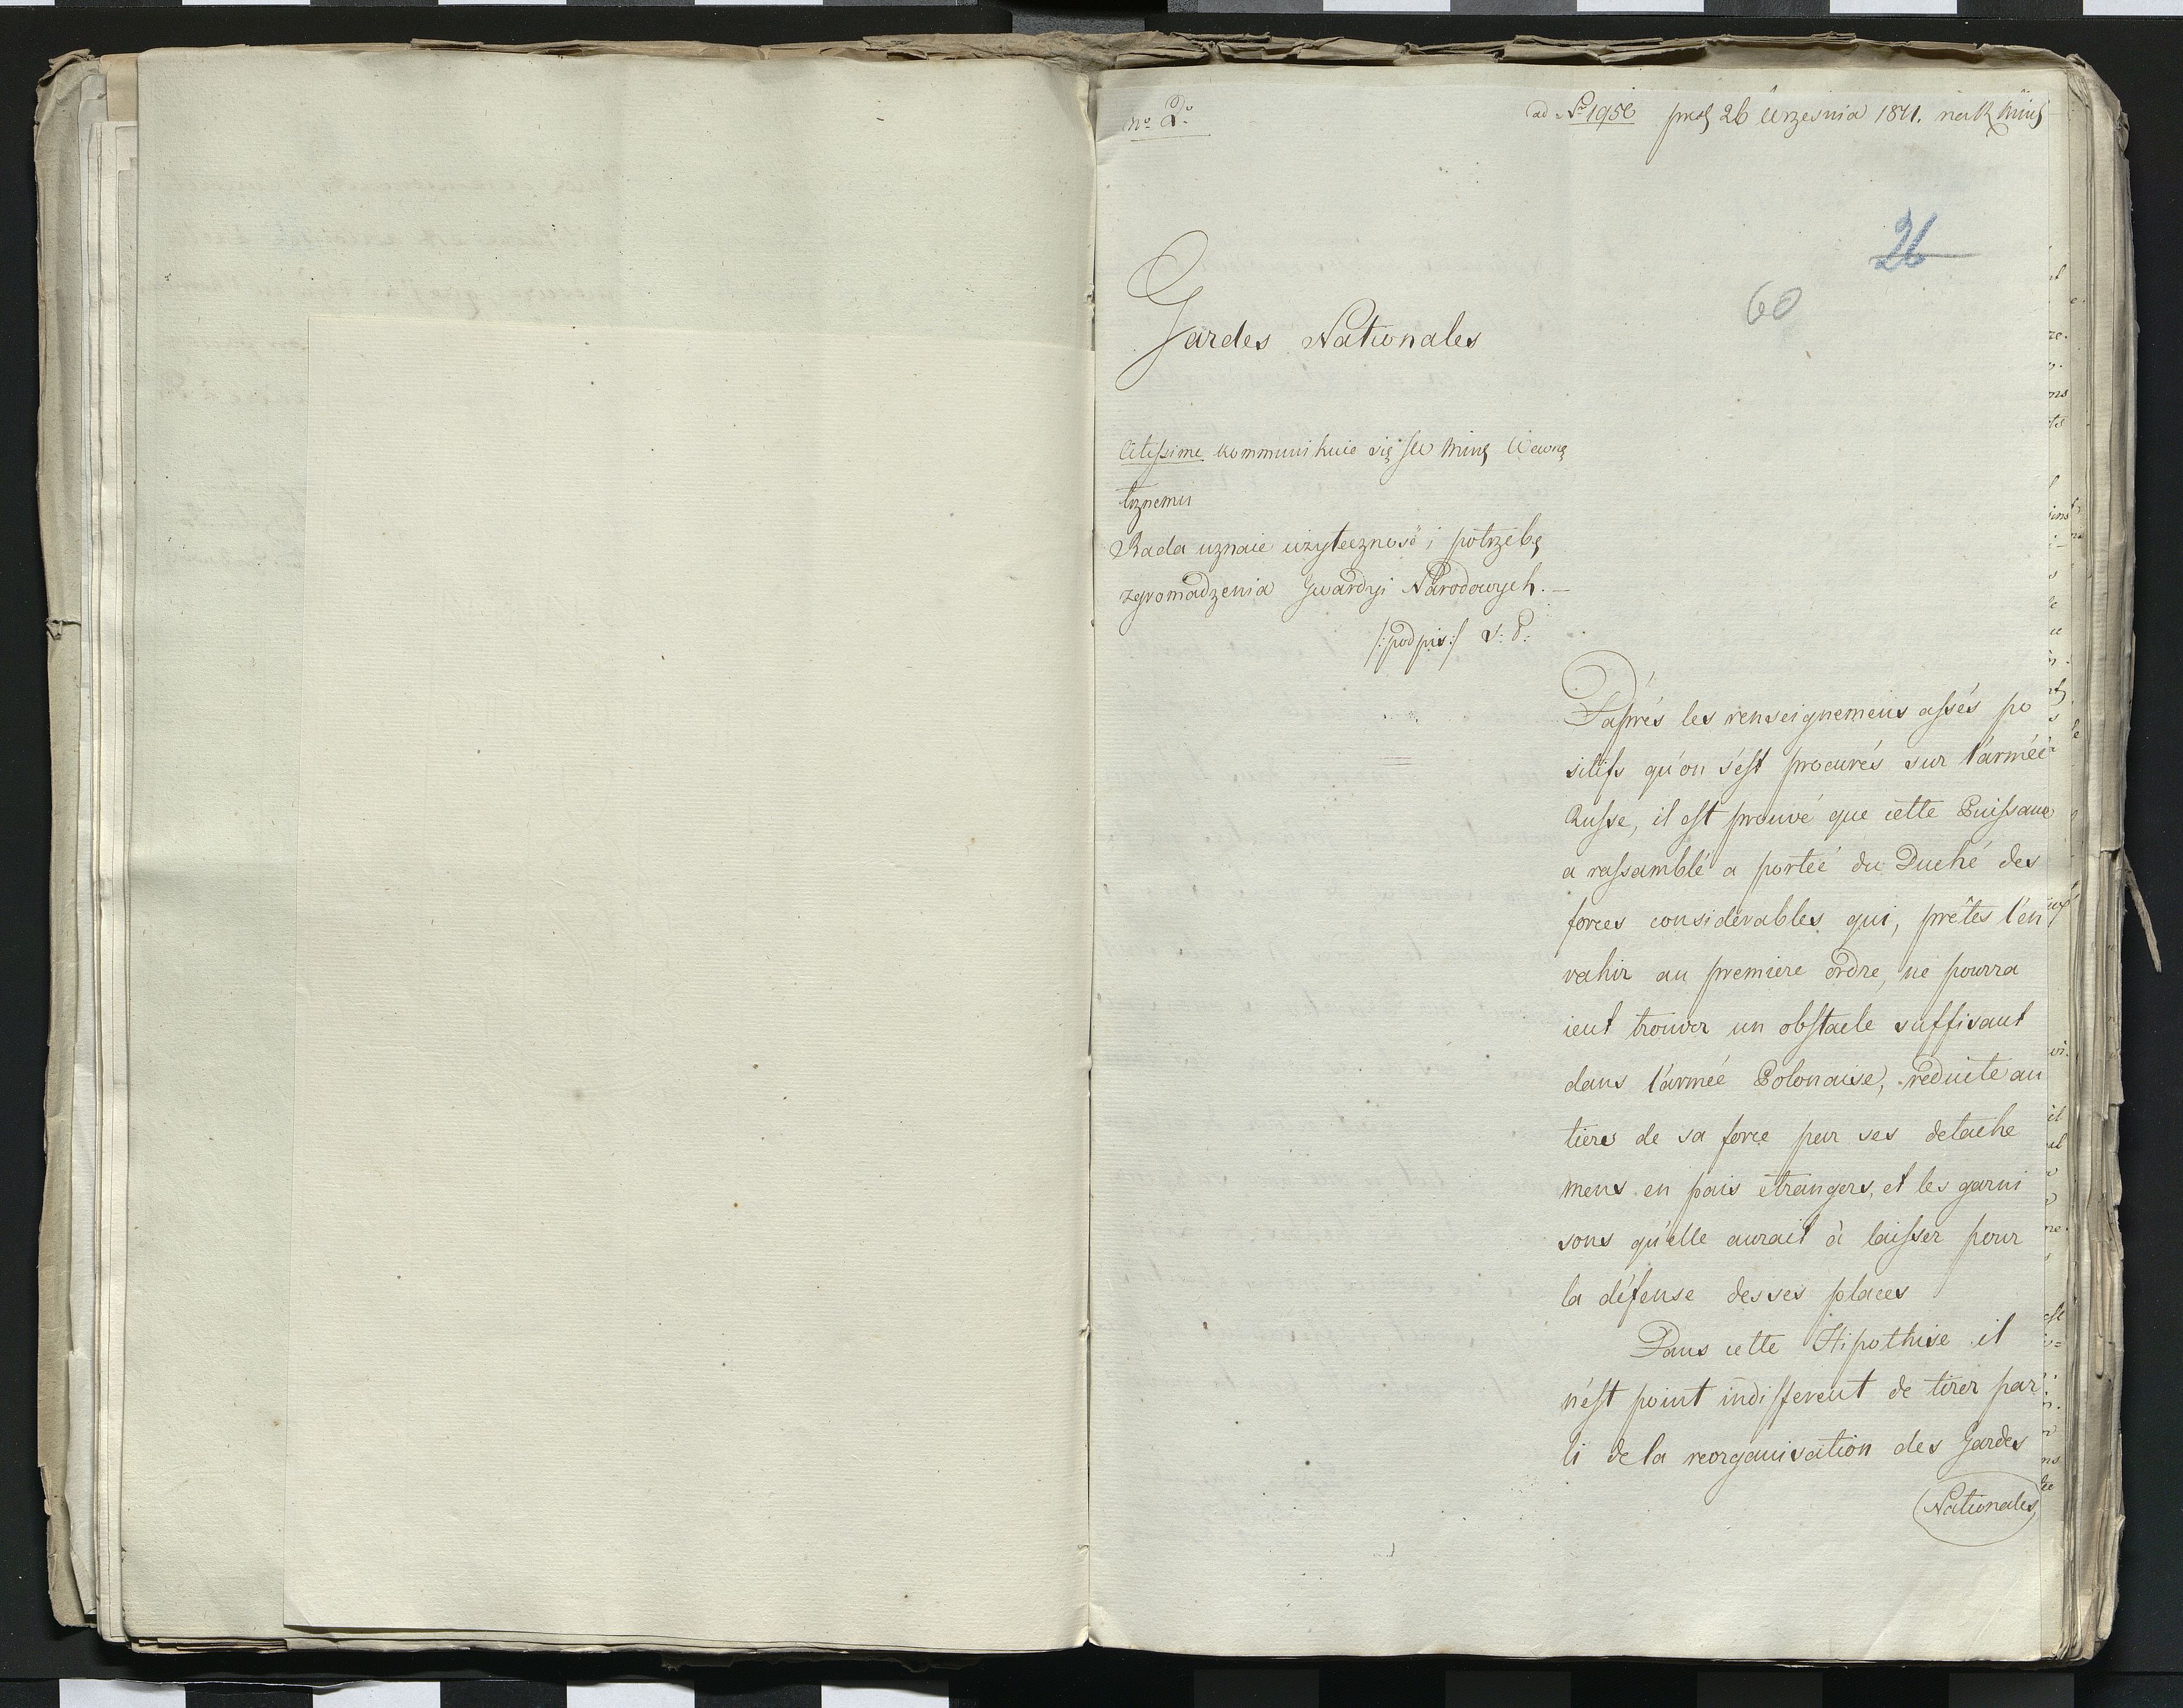 nº 2º
ad Nº 1956 26 Września 1811.
26
60
Gardes Nationales
Citissime kommunikuie się JW Minę Wewnę
trznemu
Rada uznaie użyteczność i potrzebę
zgromadzenia Gwardyi Narodowych. —
/:podpis:/ S: P:
D'aprés les renseignemens assés po
sitifs qu'on s'est procurés sur l'armeé
Russe, il est prouvé que cette Puissance
a rassamblé a porteé du Duché des
forces considérables qui, prêtes l'en
vahir au premiere ordre, ne pourra
ient trouver un obstacle suffisant
dans l'armeé Polonaise, reduite au
tiers de sa force par ses detache
mens en pais etrangers, et les garni
sons qu'elle aurait à laisser pour
la défense desses places
Dans cette Hipothise il
n'est point indifferent de tirer par
ti de la reorganisation des Gardes
Nationales